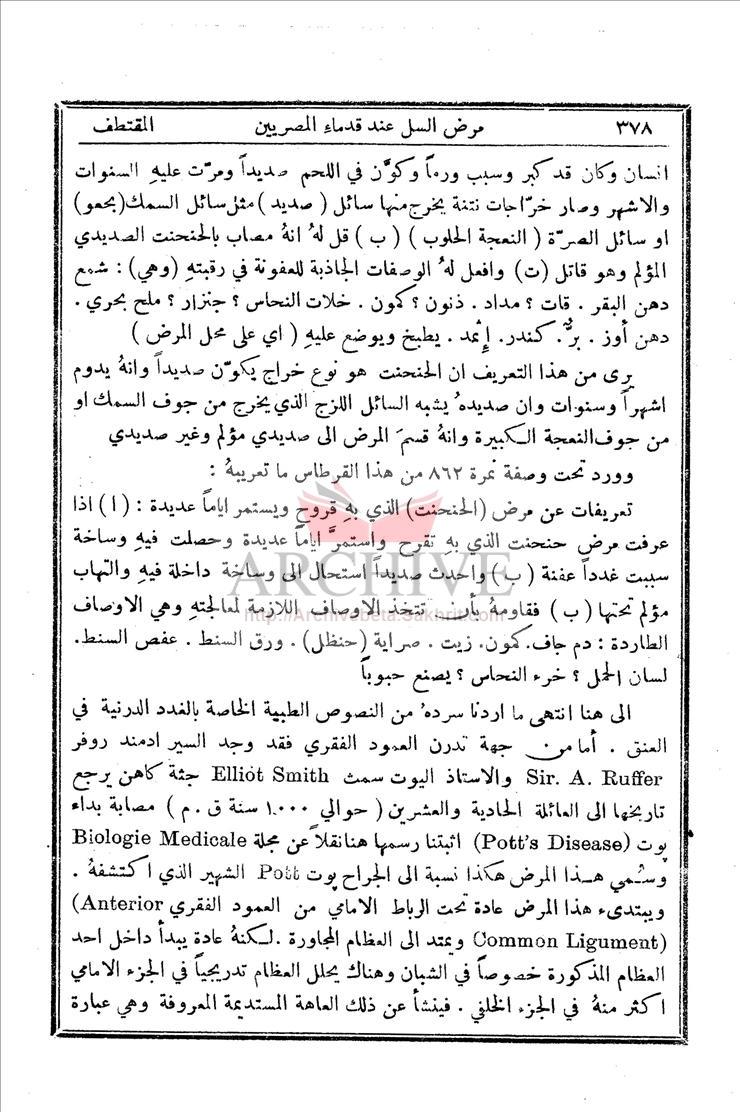 ٣٧٨ مرض السل عند قدماء المصريين المقتطف
انسان وكان قد كبر وسبب ورماً وكوَّن في اللحم صديداً ومرّت عليهِ السنوات
والاشهر وصار خرّاجات نتنة يخرج منها سائل ( صديد ) مثل سائل السمك (بجعو)
او سائل الصرّة ( النعجة الحلوب ) ( ب ) قل لهُ انهُ مصاب بالخنحنت الصديدي
المؤلم وهو قاتل (ت) وافعل لهُ الوصفات الجاذبة للعفونة في رقبتهِ (وهي) : شمع
دهن البقر . قات ؟ مداد . ذنون ؟ كمون . خلات النحاس ؟ جنزار ؟ ملح بحري .
دهن أوز . برّ . كندر . إثمد . يطبخ ويوضع عليهِ ( اي على محل المرض )
يرى من هذا التعريف ان الخنحنت هو نوع خراج يكوّن صديداً وانهُ يدوم
اشهراً وسنوات وان صديدهُ يشبه السائل اللزج الذي يخرج من جوف السمك او
من جوف النعجة الكبيرة وانهُ قسمَ المرض الى صديدي مؤلم وغير صديدي
وورد تحت وصفة نمرة ٨٦٢ من هذا القرطاس ما تعريبهُ :
تعريفات عن مرض (الخنحنت) الذي بهِ قروح ويستمر اياماً عديدة : (ا) اذا
عرفت مرض حنحنت الذي به تقرح واستمرَّ اياماً عديدة وحصلت فيهِ وساخة
سببت غدداً عفنة ( ب ) واحدث صديداً استحال الى وساخة داخلة فيهِ والتهاب
مؤلم تحتها ( ب ) فقاومهُ بأن تتخذ الاوصاف اللازمة لمعالجتهِ وهي الاوصاف
الطاردة : دم جاف. كمون. زيت . صراية (حنظل) . ورق السنط . عفص السنط.
لسان الحمل ؟ خرء النحاس ؟ يصنع حبوباً
الى هنا انتهى ما اردنا سردهُ من النصوص الطبية الخاصة بالغدد الدرنية في
العنق . أما من جهة تدرن العمود الفقري فقد وجد السير ادمند روفر
Sir. A. Ruffer والاستاذ اليوت سمث Elliot Smith جثة كاهن يرجع
تاريخها الى العائلة الحادية والعشرين ( حوالي ١٠٠٠ سنة ق . م ) مصابة بداء
بوت (Pott's Disease) اثبتنا رسمها هنا نقلاً عن مجلة Biologie Medicale
وسُمي هـذا المرض هكذا نسبة الى الجراح بوت Pott الشهير الذي اكتشفهُ .
ويبتدىء هذا المرض عادة تحت الرباط الامامي من العمود الفقري (Anterior
Common Ligument) ويمتد الى العظام المجاورة . لكنهُ عادة يبدأ داخل احد
العظام المذكورة خصوصاً في الشبان وهناك يحلل العظام تدريجياً في الجزء الامامي
اكثر منهُ في الجزء الخلفي . فينشأ عن ذلك العاهة المستديمة المعروفة وهي عبارة
ARCHIVE
http://Archivebeta.Sakhrit.com